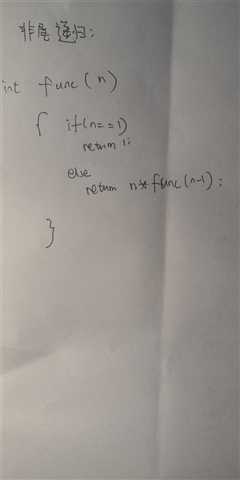 非尾递归:
int func(n)
{ if(n==1)
return 1;
else
return n*func(n-1);
}